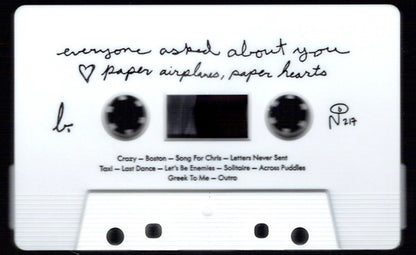 everyone asked about you
♡ paper airplanes, paper hearts
b.
N 217
Crazy – Boston – Song For Chris – Letters Never Sent
Taxi – Last Dance – Let's Be Enemies – Solitaire – Across Puddles
Greek To Me – Outro